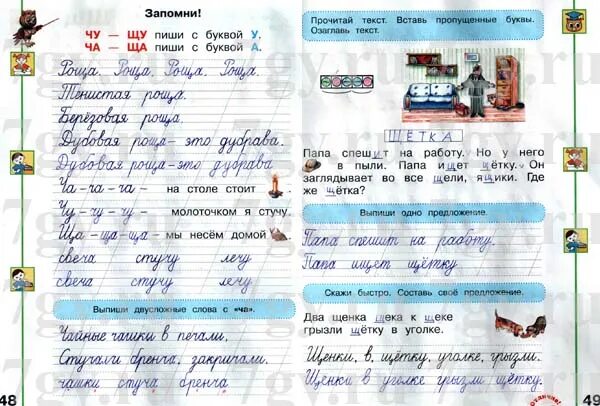 Запомни!
ЧУ — ЩУ пиши с буквой У.
ЧА — ЩА пиши с буквой А.
Роща. Роща. Роща. Роща.
Тенистая роща.
Берёзовая роща.
Дубовая роща - это дубрава.
Дубовая роща - это дубрава
Ча - ча - ча - на столе стоит
Чу - чу - чу - молоточком я стучу.
Ща - ща - ща - мы несём домой
свеча стучу лечу
свеча стучу лечу
Выпиши двусложные слова с «ча».
Чайные чашки в печали,
Стучали бренча, закричали.
чашки стуча бренча
48
Прочитай текст. Вставь пропущенные буквы.
Озаглавь текст.
ЩЁТКА
Папа спешит на работу. Но у него
в пыли. Папа ищет щётку. Он
заглядывает во все щели, ящики. Где
же щётка?
Выпиши одно предложение.
Папа спешит на работу.
Папа ищет щётку
Скажи быстро. Составь своё предложение.
Два щенка щека к щеке
грызли щётку в уголке.
Щенки, в, щётку, уголке, грызли.
Щенки в уголке грызли щётку.
49